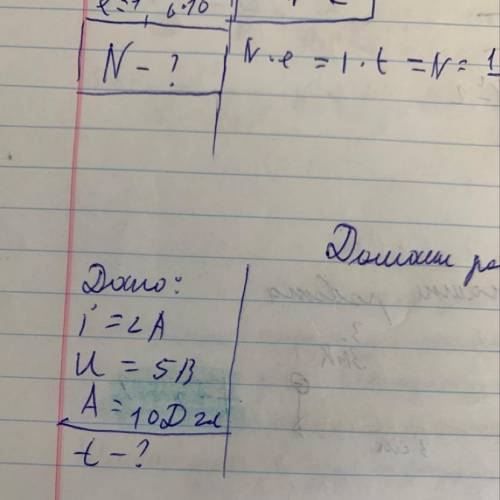 N - ?
N · e = I · t = N = 1
Домашн ра
Дано:
i = 2A
U = 5B
A = 10 Дж
t - ?